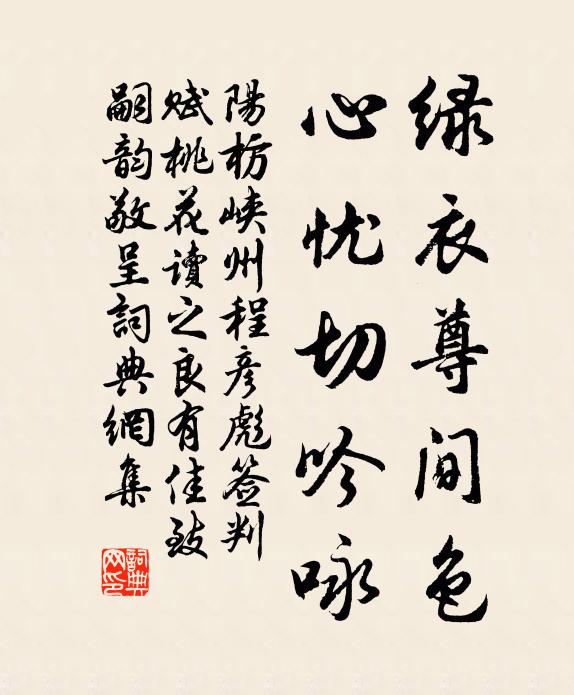 绿衣尊间色
心忧切吟咏
陽枋峡州程彦彪签判
赋桃花讀之良有佳致
嗣韵敬呈詞典網集
詞典网印